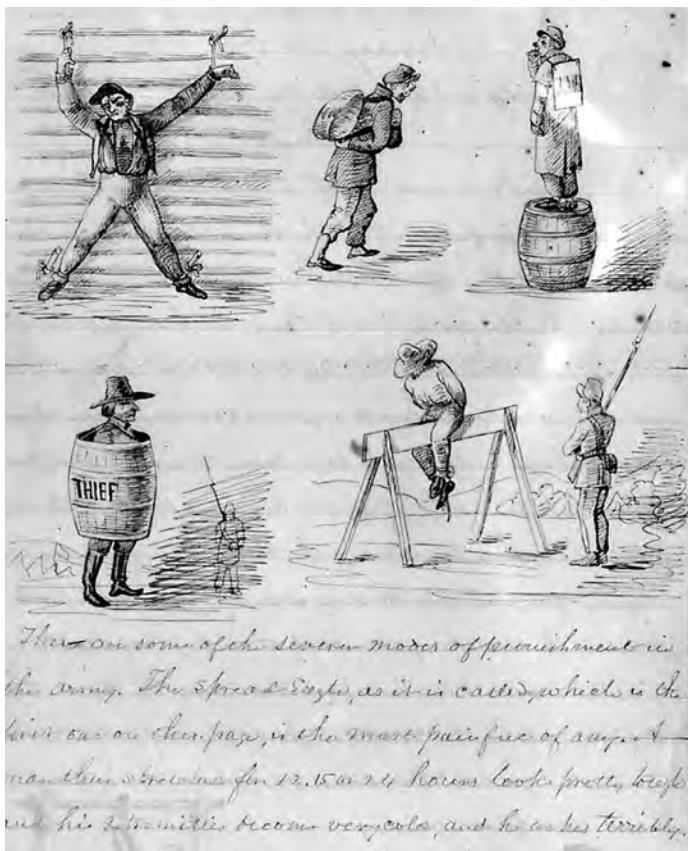 THIEF
These are some of the severer modes of punishment in
the army. The Spread Eagle, as it is called, which is the
first one on this page, is the most painful of any. A
man thus stretched for 12. 15 or 24 hours looks pretty tough
and his extremities become very cold, and he aches terribly.